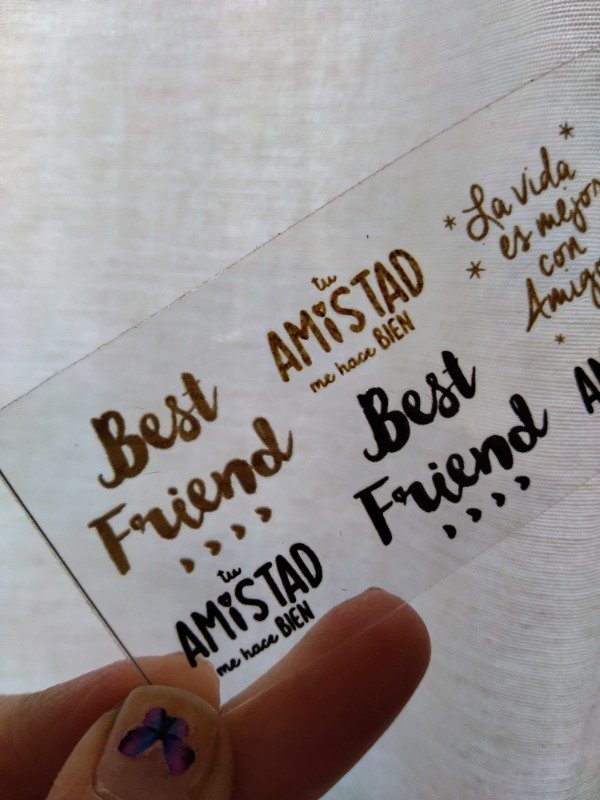 La vida
es mejor
con
tu
AMiSTAD
me hace BIEN
Best
Friend
Best
Friend
tu
AMiSTAD
me hace BIEN